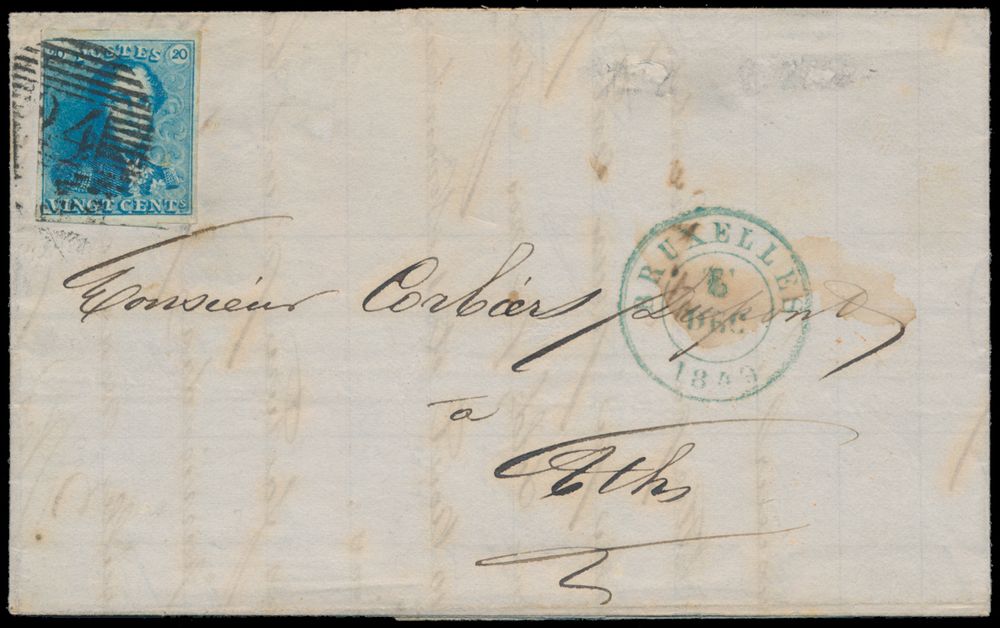 20 POSTES 20
24
VINGT CENTS
BRUXELLES
DEC
1849
Monsieur Corbiers Dupont
à
Ath